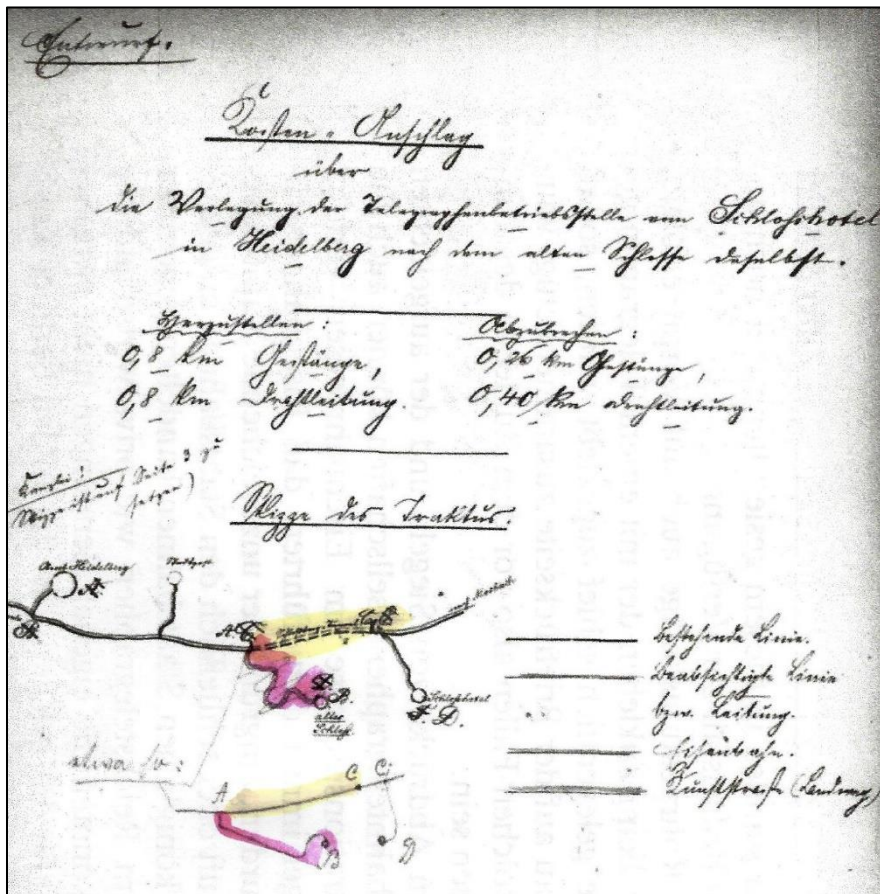 Entwurf.
Kosten-Anschlag
über
die Verlegung der Telegraphenbetriebsstelle vom Schloßhotel
in Heidelberg nach dem alten Schlosse daselbst.
Herzustellen:
0,8 km Gestänge,
0,8 km Drahtleitung.
Abzubrechen:
0,26 km Gestänge,
0,40 km Drahtleitung.
Kanzlei:
Skizze ist auf Seite 3 zu
setzen)
Skizze des Traktus.
Amt Heidelberg
Stadtpost
A.
B.
altes
Schloß.
Schloßhotel
D.
etwa so:
A
C
B
D
Bestehende Linie.
Beabsichtigte Linie
bzw. Leitung.
Eisenbahn.
Kunststraße (Landweg)